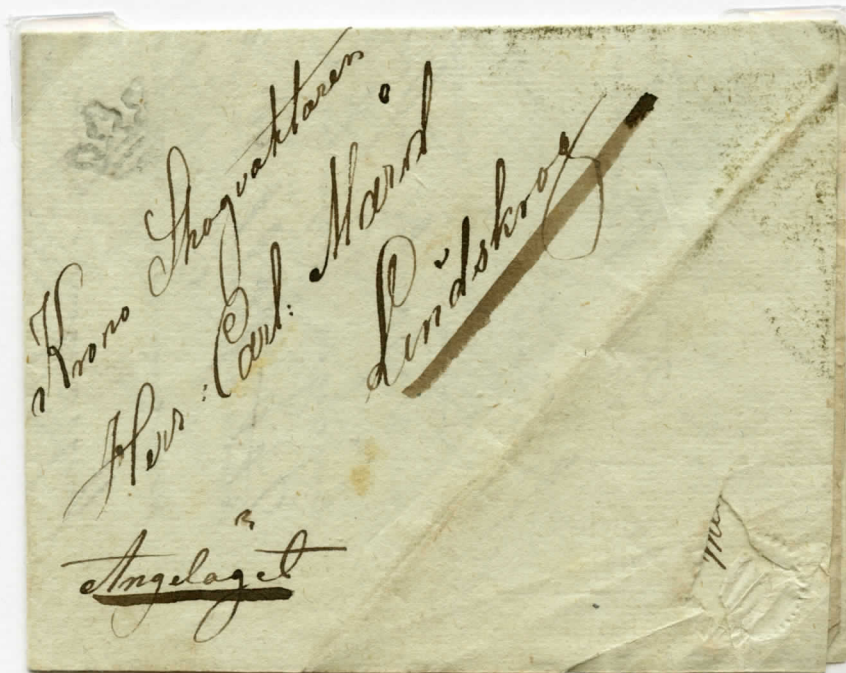 Krono Skogvaktaren
Herr Carl: Mård
Lindskrog
Angeläget